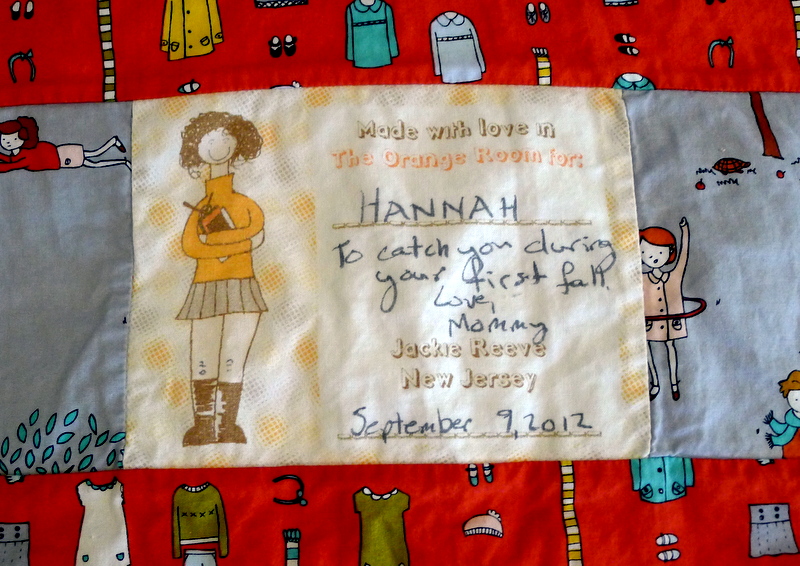 Made with love in
The Orange Room for:
HANNAH
To catch you during
your first fall.
Love,
Mommy
Jackie Reeve
New Jersey
September 9, 2012